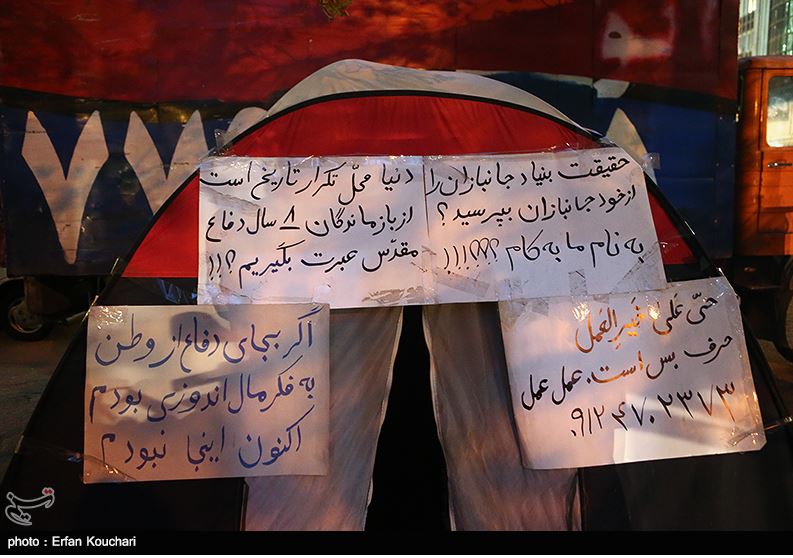 حقیقت بنیاد جانبازان را
از خود جانبازان بپرسید؟
به نام ما به کام ؟؟؟!!!!
دنیا محل تکرار تاریخ است
از بازماندگان ۸ سال دفاع
مقدّس عبرت بگیریم؟!!
حیّ علی خیرالعمل
حرف بس است. عمل عمل
۰۹۱۲۴۷۰۲۳۷۳
اگر بجای دفاع از وطن
به فکر مال اندوزی بودم
اکنون اینجا نبودم
photo : Erfan Kouchari